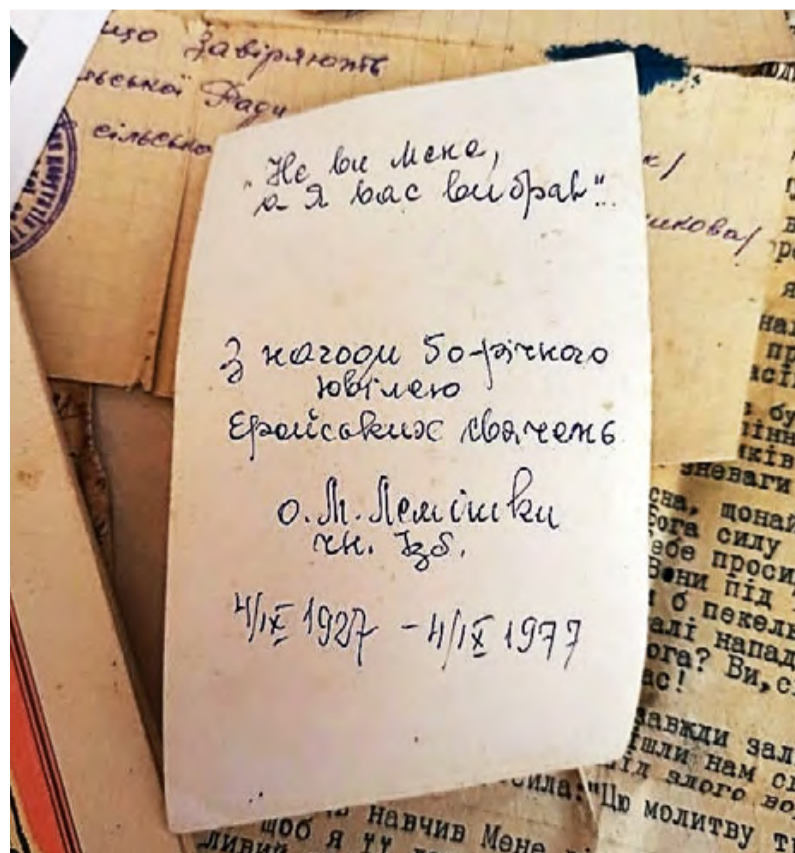 що Завіряють
льської Ради
сільсько
"Не ви Мене,
а Я вас вибрав"..
З нагоди 50-річного
ювілею
єрейських свячень
о. М. Лемішки
чн. Ізб.
4/IX 1927 – 4/IX 1977
к/
икова/
зневаги
сна, щонай
ога силу
ебе проси
Вони під
б пекель
алі напад
ога? Ви, с
ас!
завжди зал
ішли нам с
ід злого во
сила: "Цю молитву т
навчив Мене
щоб я її
ливий